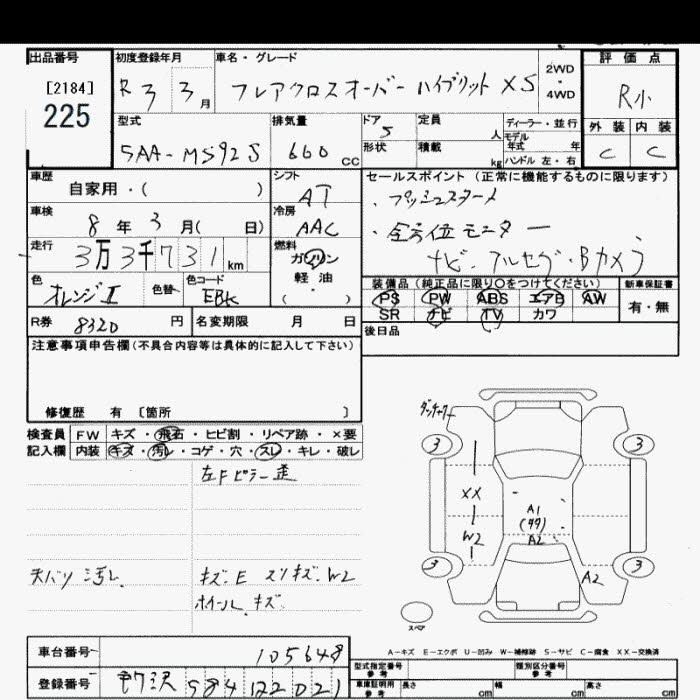 出品番号 初度登録年月 車名・グレード 評価点
[2184] R 3 3月 フレアクロスオーバー ハイブリット XS 2WD・4WD R小
225
型式 排気量 ドア 定員 ディーラー・並行 外装 内装
5AA-MS92S 660 cc 5 人 モデル年式 年
形状 積載 kg ハンドル 左・右 C C
車歴 シフト セールスポイント (正常に機能するものに限ります)
自家用・( ) AT ・プッシュスタート
車検 冷房
8年 3月( 日) AAC ・全方位モニター
走行 燃料 ナビ・フルセグ・Bカメラ
3万3千731km ガソリン・軽油・( )
色 色替 色コード 装備品 (純正品に限り〇をつけてください) 新車保証書
オレンジⅡ EBK PS PW ABS エアB AW 有・無
SR ナビ TV カワ
R券 8320円 名変期限 月 日 後日品
注意事項申告欄(不具合内容等は具体的に記入して下さい)
修復歴 有 〔箇所 〕
ダッチャクー
検査員 FW キズ・飛石・ヒビ割・リペア跡・×要
記入欄 内装 キズ・汚レ・コゲ・穴・スレ・キレ・破レ
3 3
左Fピラー歪
XX
A1
W2 A2
3 3
天バリ汚レ キズ.E スリキズ.W2 A2
ホイール.キズ
スペア
A-キズ E-エクボ U-凹み W-補修跡 S-サビ C-腐食 XX-交換済
車台番号 105648
型式指定番号 参考 類別区分番号 参考
登録番号 所沢 584 122021
車庫証明用 参考 長さ cm 幅 cm 高さ cm